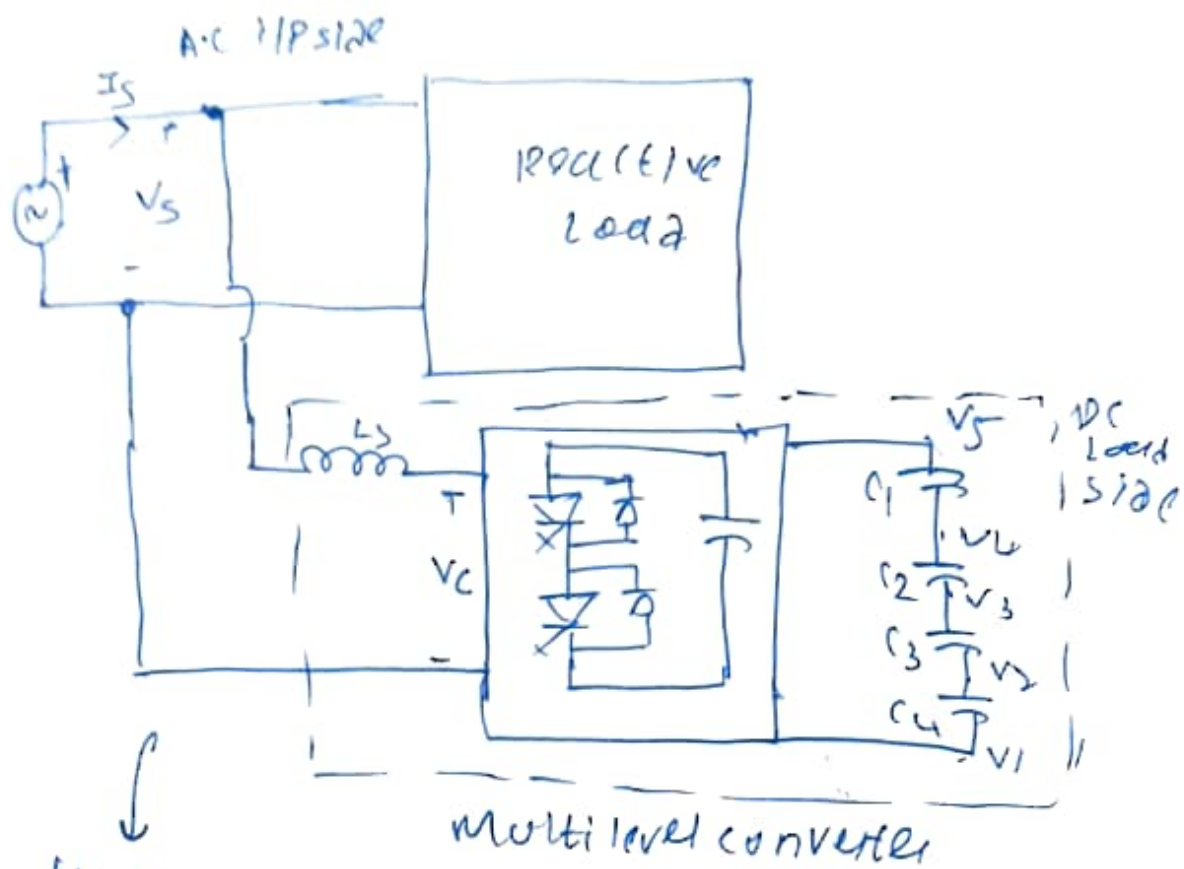 A.C i/p side
Is
+
+
Vs
-
~
Reactive
load
Ls
V5
DC
Load
side
C1
V4
C2
V3
C3
V2
C4
V1
+
Vc
-
Multilevel converter